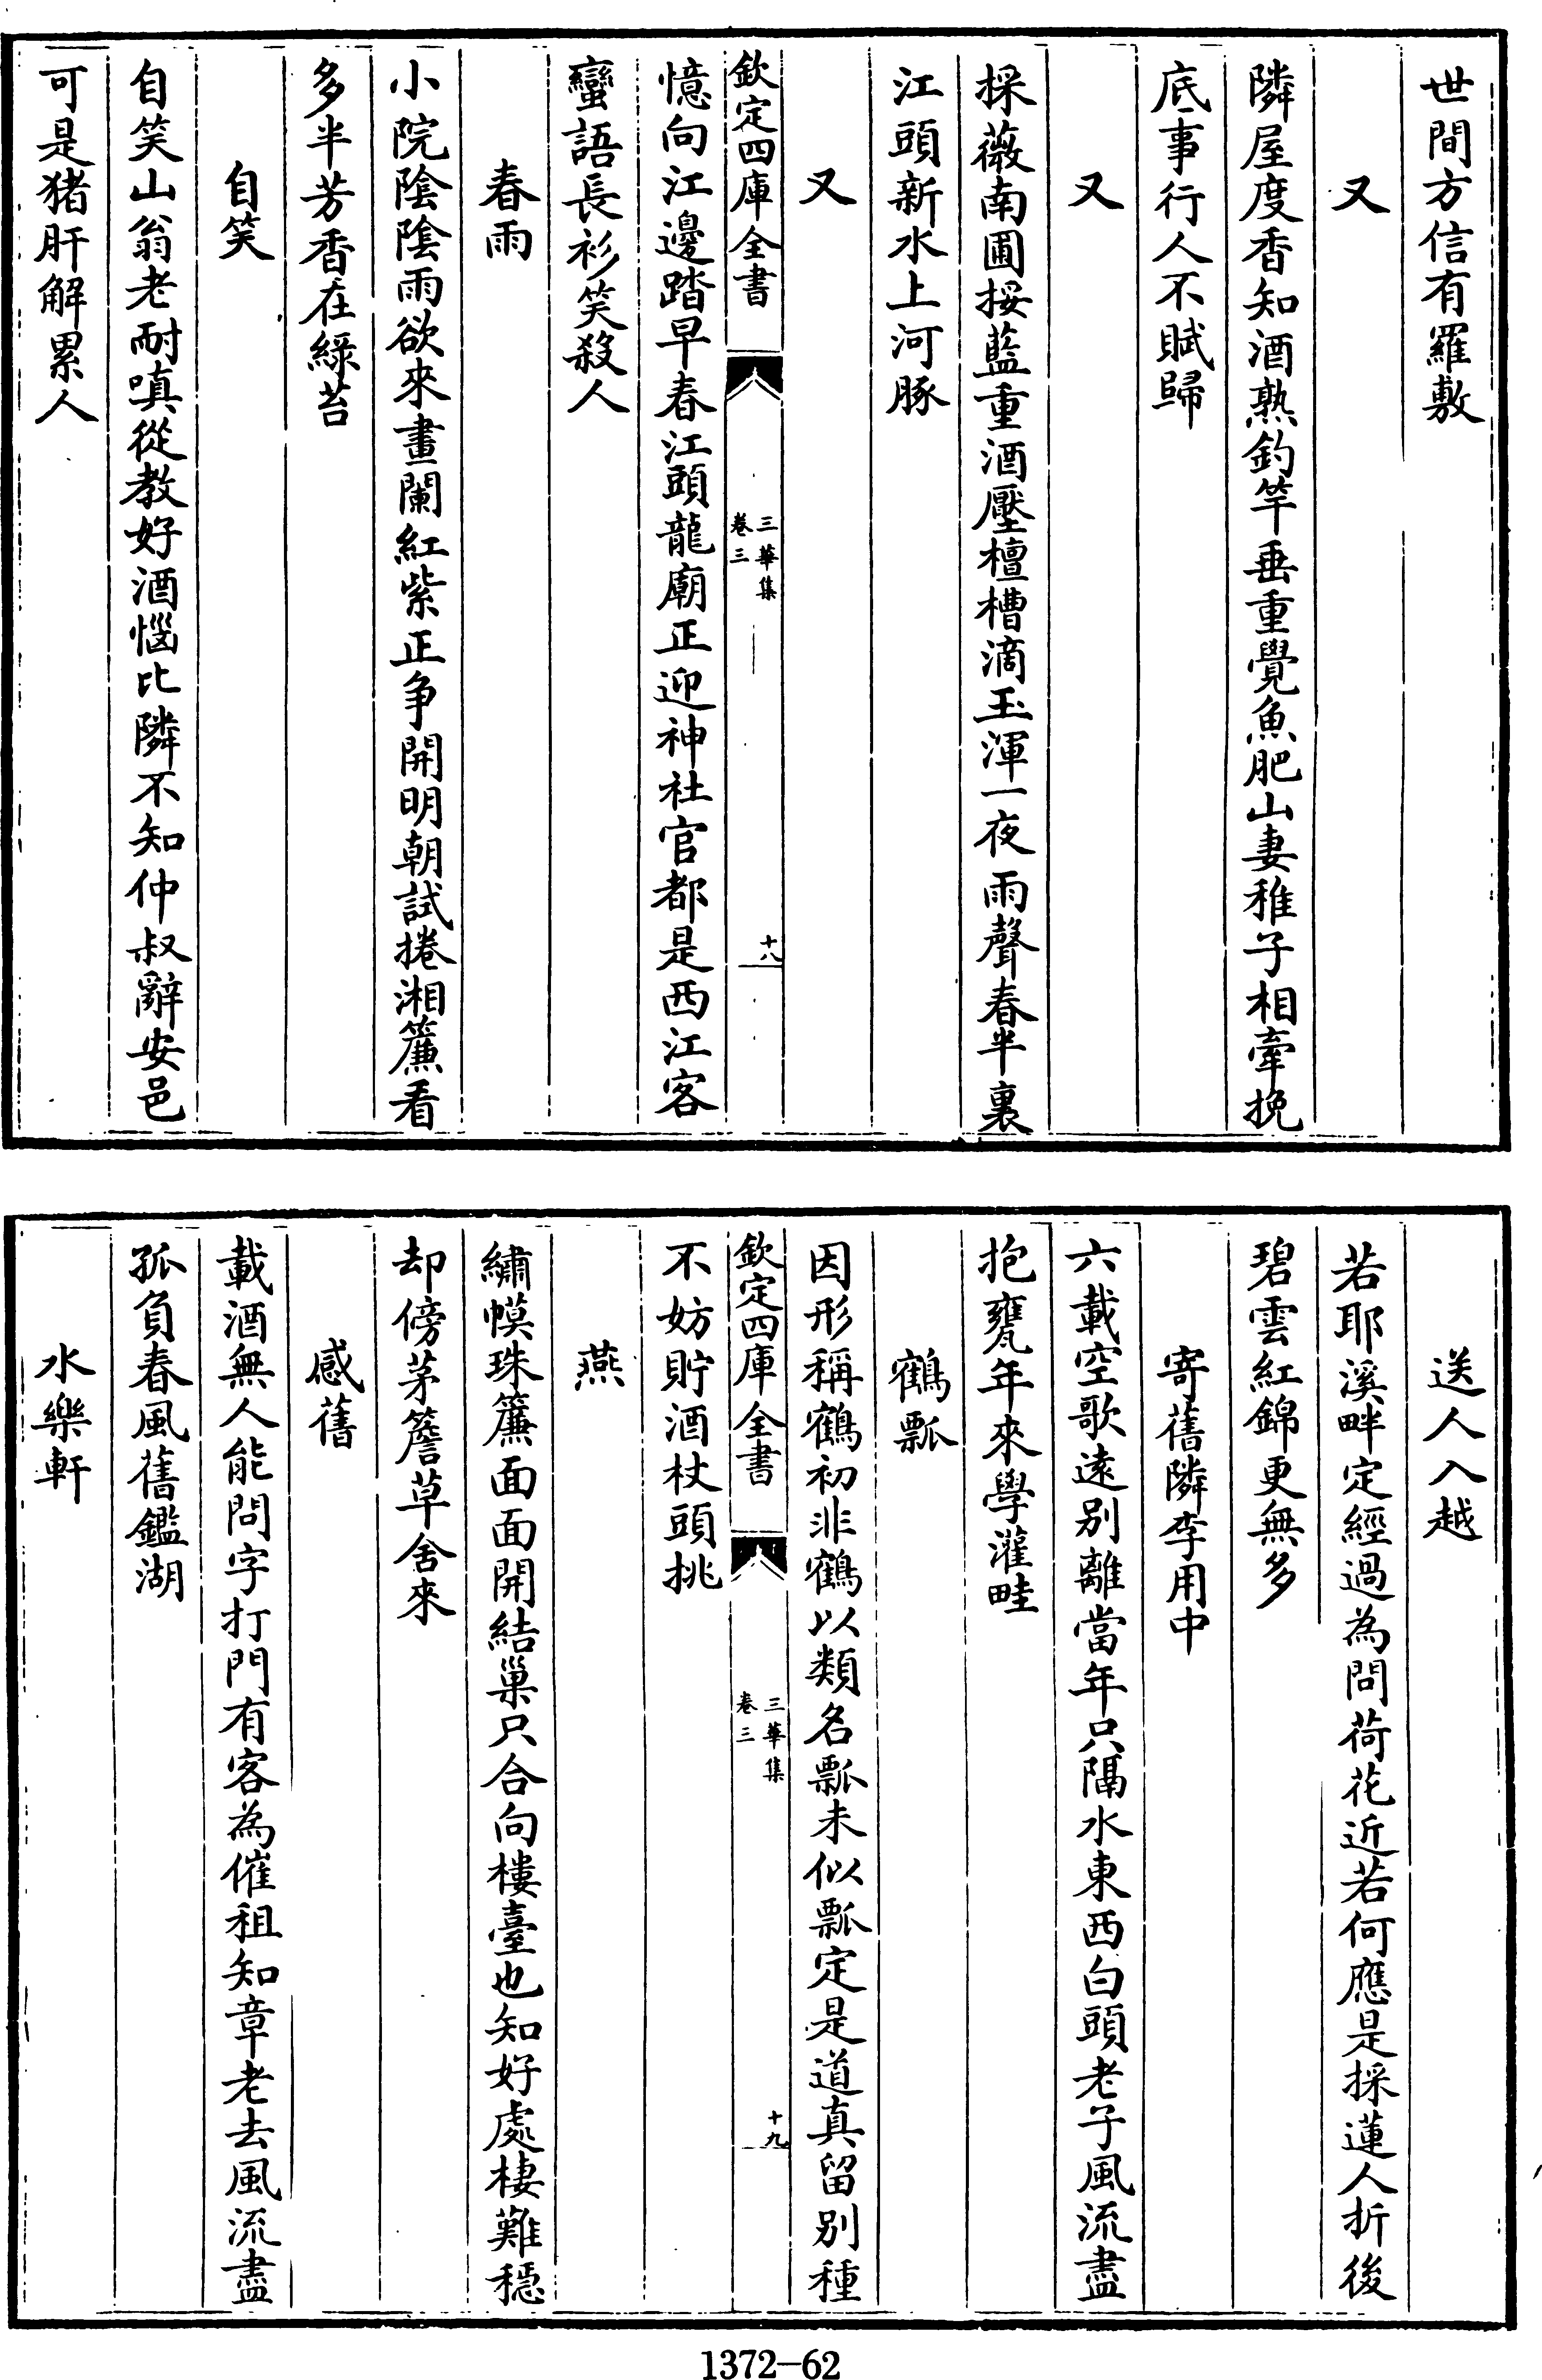 世間方信有羅敷
又
隣屋度香知酒熟釣竿垂重覺魚肥山妻稚子相牽挽
底事行人不賦歸
又
採薇南圃挼藍重酒壓檀槽滴玉渾一夜雨聲春半裏
江頭新水上河豚
又
欽定四庫全書
三華集
卷三
十八
憶向江邊踏早春江頭龍廟正迎神社官都是西江客
蠻語長衫笑殺人
春雨
小院陰陰雨欲來畫闌紅紫正争開明朝試捲湘簾看
多半芳香在綠苔
自笑
自笑山翁老耐嗔從教好酒惱比隣不知仲叔辭安邑
可是猪肝解累人
送人入越
若耶溪畔定經過為問荷花近若何應是採蓮人折後
碧雲紅錦更無多
寄舊隣李用中
六載空歌遠别離當年只隔水東西白頭老子風流盡
抱甕年來學灌畦
鶴瓢
因形稱鶴初非鶴以類名瓢未似瓢定是道真留别種
欽定四庫全書
三華集
卷三
十九
不妨貯酒杖頭挑
燕
繡幙珠簾面面開結巢只合向樓臺也知好處棲難穏
却傍茅簷草舍來
感舊
載酒無人能問字打門有客為催租知章老去風流盡
孤負春風舊鑑湖
水樂軒
1372-62